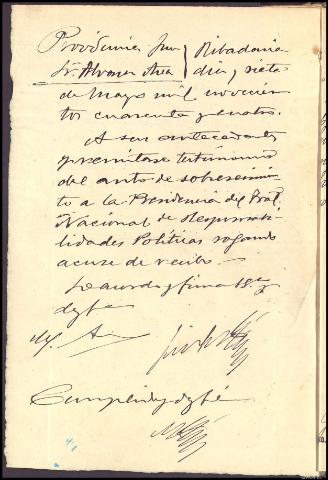 Providencia Juez } Ribadavia
Sr. Alvarez } diez y siete
de Mayo mil novecien
tos cuarenta y cuatro.
A sus antecedentes
y remitase testimonio
del auto de sobreseimien
to a la Presidencia del Tral.
Nacional de Responsabi-
lidades Politicas rogando
acuse de recibo.
Lo acordo y firma S.Sª
doy fe
Cumplido, doy fé